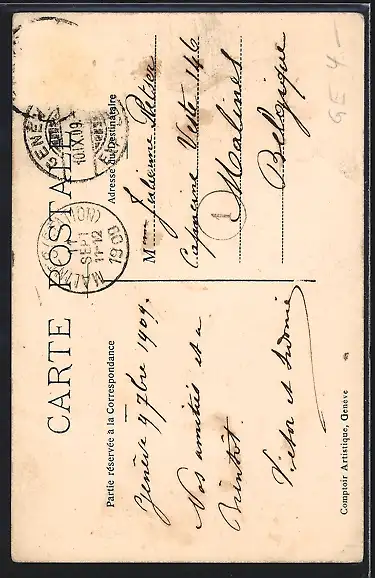 CARTE POSTALE
Partie réservée à la Correspondance
Adresse du Destinataire
Genève 9 7bre 1909.
Nos amitiés et a
Bientôt.
Victor et Sidonie
Mme Julienne
Veste 146
Malines
Belgique
GENÈ
10.IX.09.
MALINES
11 SEPT
11-12
1909
1
GE 4-
Comptoir Artistique, Genève